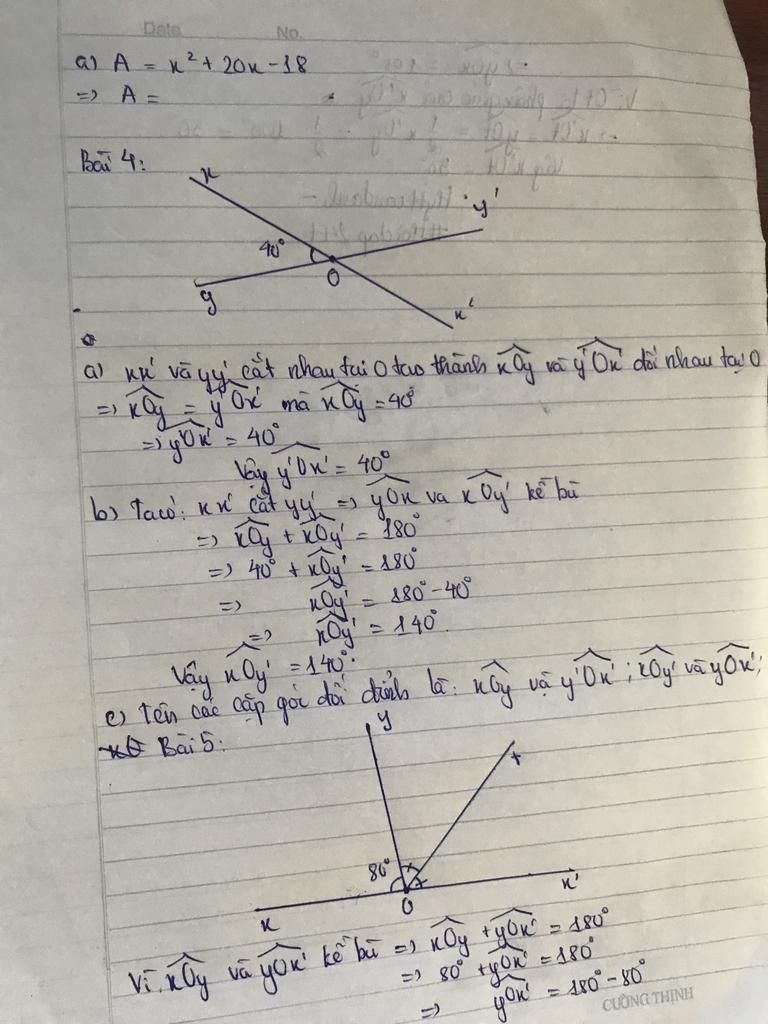 Date No.
a) A = x² + 20x - 18
=> A =
Bài 4:
x
y'
40°
O
y
x'
a) xx' và yy' cắt nhau tại O tạo thành xOy và y'Ox' đối nhau tại O
=> xOy = y'Ox' mà xOy = 40°
=> y'Ox' = 40°
Vậy y'Ox' = 40°
b) Ta có: xx' cắt yy' => yOx va xOy' kề bù
=> xOy + xOy' = 180°
=> 40° + xOy' = 180°
=> xOy' = 180° - 40°
=> xOy' = 140°.
Vậy xOy' = 140°.
c) Tên các cặp góc đối đỉnh là: xOy và y'Ox'; xOy' và yOx';
Bài 5:
y
t
80°
x
O
x'
Vì xOy và yOx' kề bù => xOy + yOx' = 180°
=> 80° + yOx' = 180°
=> yOx' = 180° - 80°
CƯỜNG THỊNH